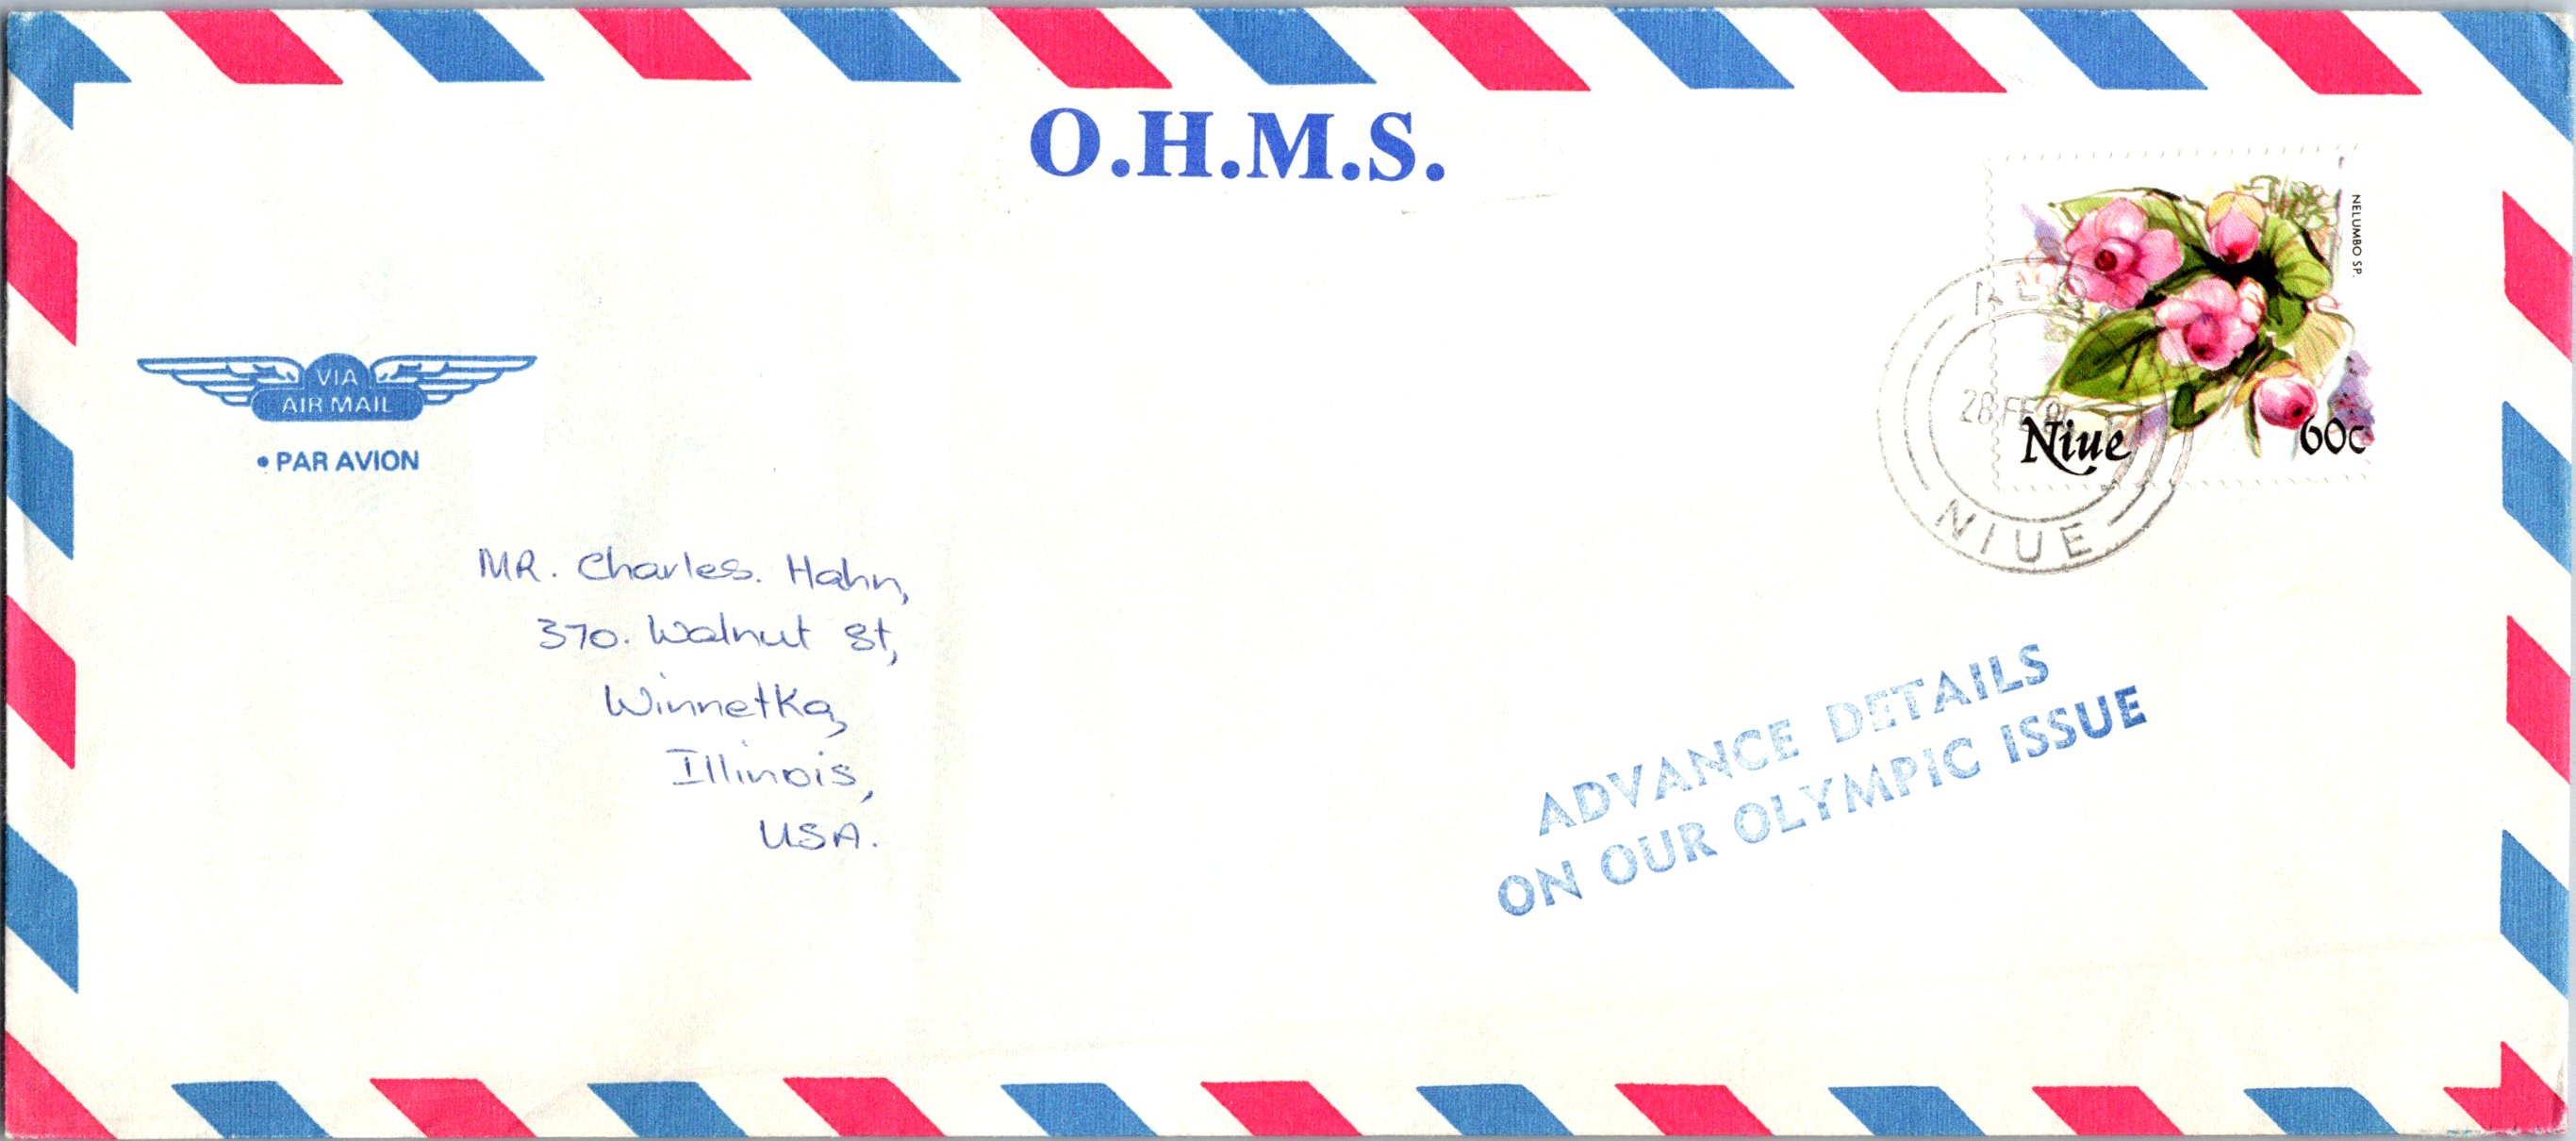 O.H.M.S.
NELUMBO SP.
VIA
AIR MAIL
• PAR AVION
Niue
60c
NIUE
MR. Charles. Hahn,
370. Walnut St,
Winnetka,
Illinois,
USA.
ADVANCE DETAILS
ON OUR OLYMPIC ISSUE